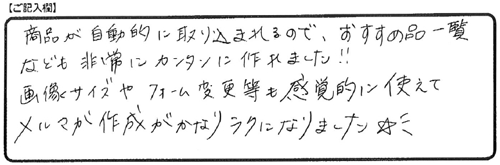 【ご記入欄】
商品が自動的に取り込まれるので、おすすめ品一覧
なども非常にカンタンに作れました!!
画像サイズや フォーム変更等も感覚的に使えて
メルマガ作成がかなりラクになりました☆ミ